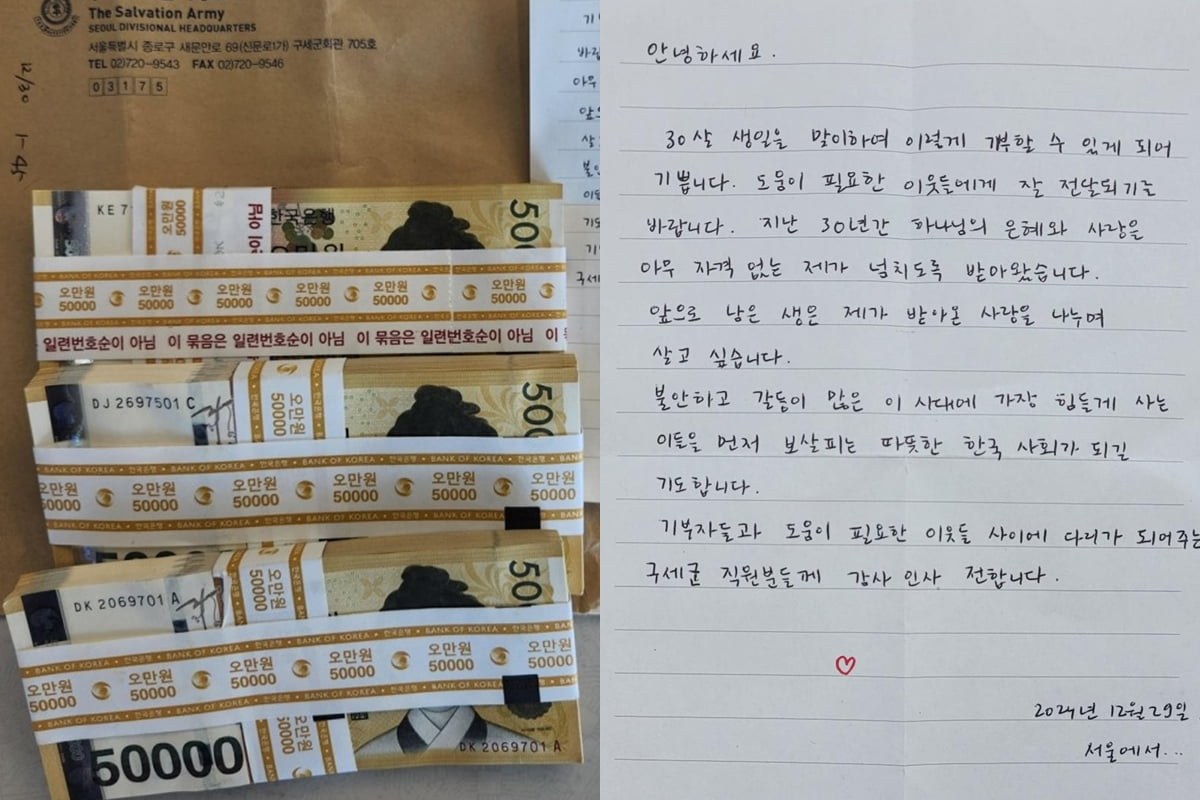 The Salvation Army
SEOUL DIVISIONAL HEADQUARTERS
서울특별시 종로구 새문안로 69(신문로1가) 구세군회관 705호
TEL 02)720-9543 FAX 02)720-9546
03175
12/30
KE 7
오만원
50000
한국은행
500
BANK OF KOREA • 한국은행 • BANK OF KOREA • 한국은행 • BANK OF KOREA
오만원 오만원 오만원 오만원 오만원 오만원
50000 50000 50000 50000 50000 50000
일련번호순이 아님 이 묶음은 일련번호순이 아님 이 묶음은 일련번호순이 아님 이
DJ 2697501 C
오만원
50000
500
BANK OF KOREA • 한국은행 • BANK OF KOREA • 한국은행 • BANK OF KOREA
오만원 오만원 오만원 오만원 오만원 오만원
50000 50000 50000 50000 50000 50000
BANK OF KOREA • 한국은행 • BANK OF KOREA • 한국은행
DK 2069701 A
오만원
50000
500
BANK OF KOREA • 한국은행 • BANK OF KOREA • 한국은행 • BANK OF KOREA
오만원 오만원 오만원 오만원 오만원 오만원
50000 50000 50000 50000 50000 50000
BANK OF KOREA • 한국은행 • BANK OF KOREA • 한국은행
50000
DK 2069701 A
안녕하세요.
30살 생일을 맞이하여 이렇게 기부할 수 있게 되어
기쁩니다. 도움이 필요한 이웃들에게 잘 전달되기를
바랍니다. 지난 30년간 하나님의 은혜와 사랑을
아무 자격 없는 제가 넘치도록 받아왔습니다.
앞으로 남은 생은 제가 받아온 사랑을 나누며
살고 싶습니다.
불안하고 갈등이 많은 이 시대에 가장 힘들게 사는
이들을 먼저 보살피는 따뜻한 한국 사회가 되길
기도합니다.
기부자들과 도움이 필요한 이웃들 사이에 다리가 되어주는
구세군 직원분들께 감사 인사 전합니다.
2024년 12월 29일
서울에서...